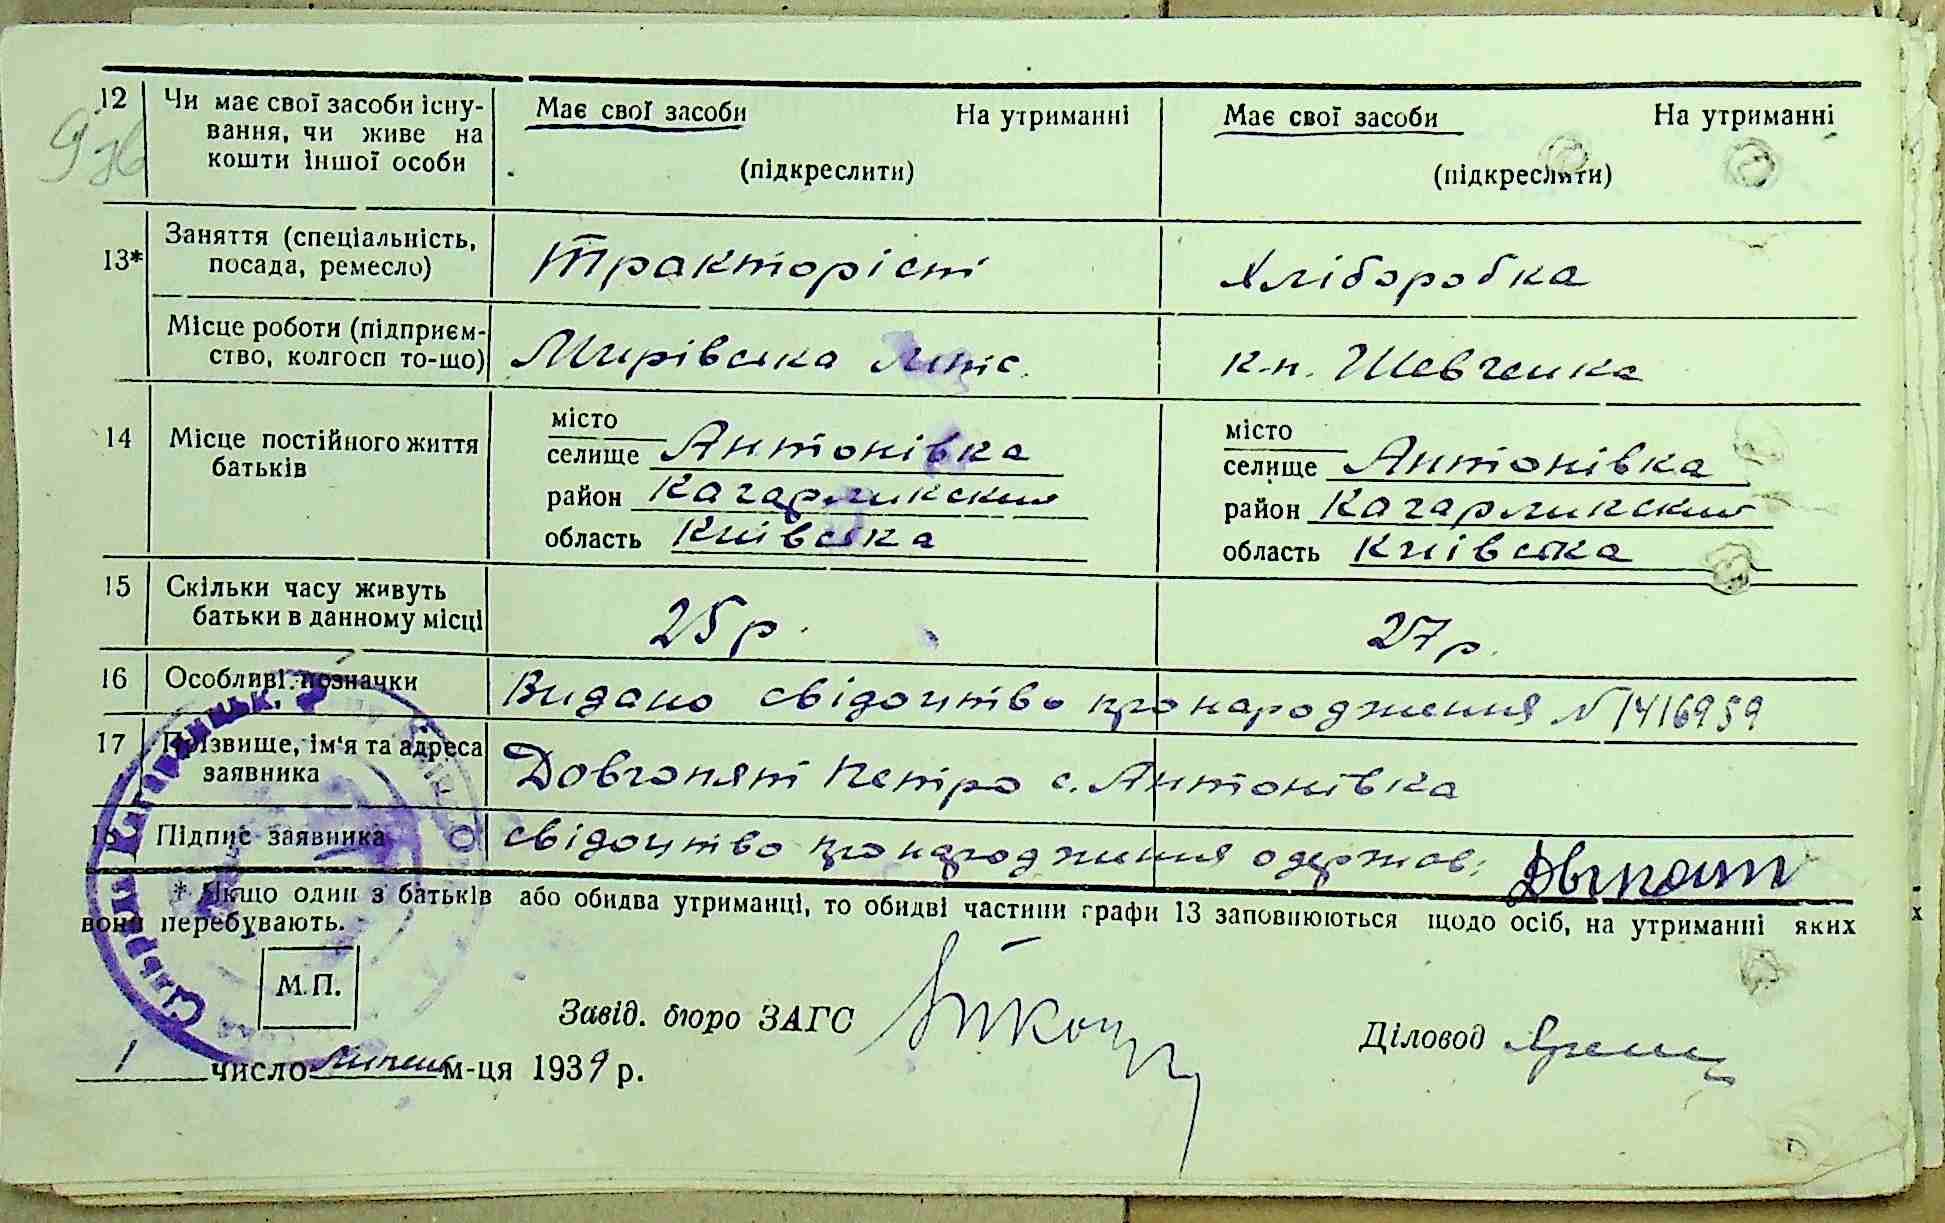 12 Чи має свої засоби існу-
вання, чи живе на
кошти іншої особи
Має свої засоби На утриманні
(підкреслити)
Має свої засоби На утриманні
(підкреслити)
13* Заняття (спеціальність,
посада, ремесло)
Тракторіст
Хліборобка
Місце роботи (підприєм-
ство, колгосп то-що)
Мирівська мтс.
к-п. Шевченка
14 Місце постійного життя
батьків
місто
селище Антонівка
район Кагарликский
область Київська
місто
селище Антонівка
район Кагарликский
область Київська
15 Скільки часу живуть
батьки в данному місці
25 р.
27 р.
16 Особливі позначки
Видано свідоцтво про народження № 1416959
17 Прізвище, ім'я та адреса
заявника
Довгопят Петро с. Антонівка
18 Підпис заявника
свідоцтво про народження одержав:
* Якщо один з батьків або обидва утриманці, то обидві частини графи 13 заповнюються щодо осіб, на утриманні яких
вони перебувають.
М.П.
Завід. бюро ЗАГС
Діловод
1 число липень м-ця 1939 р.